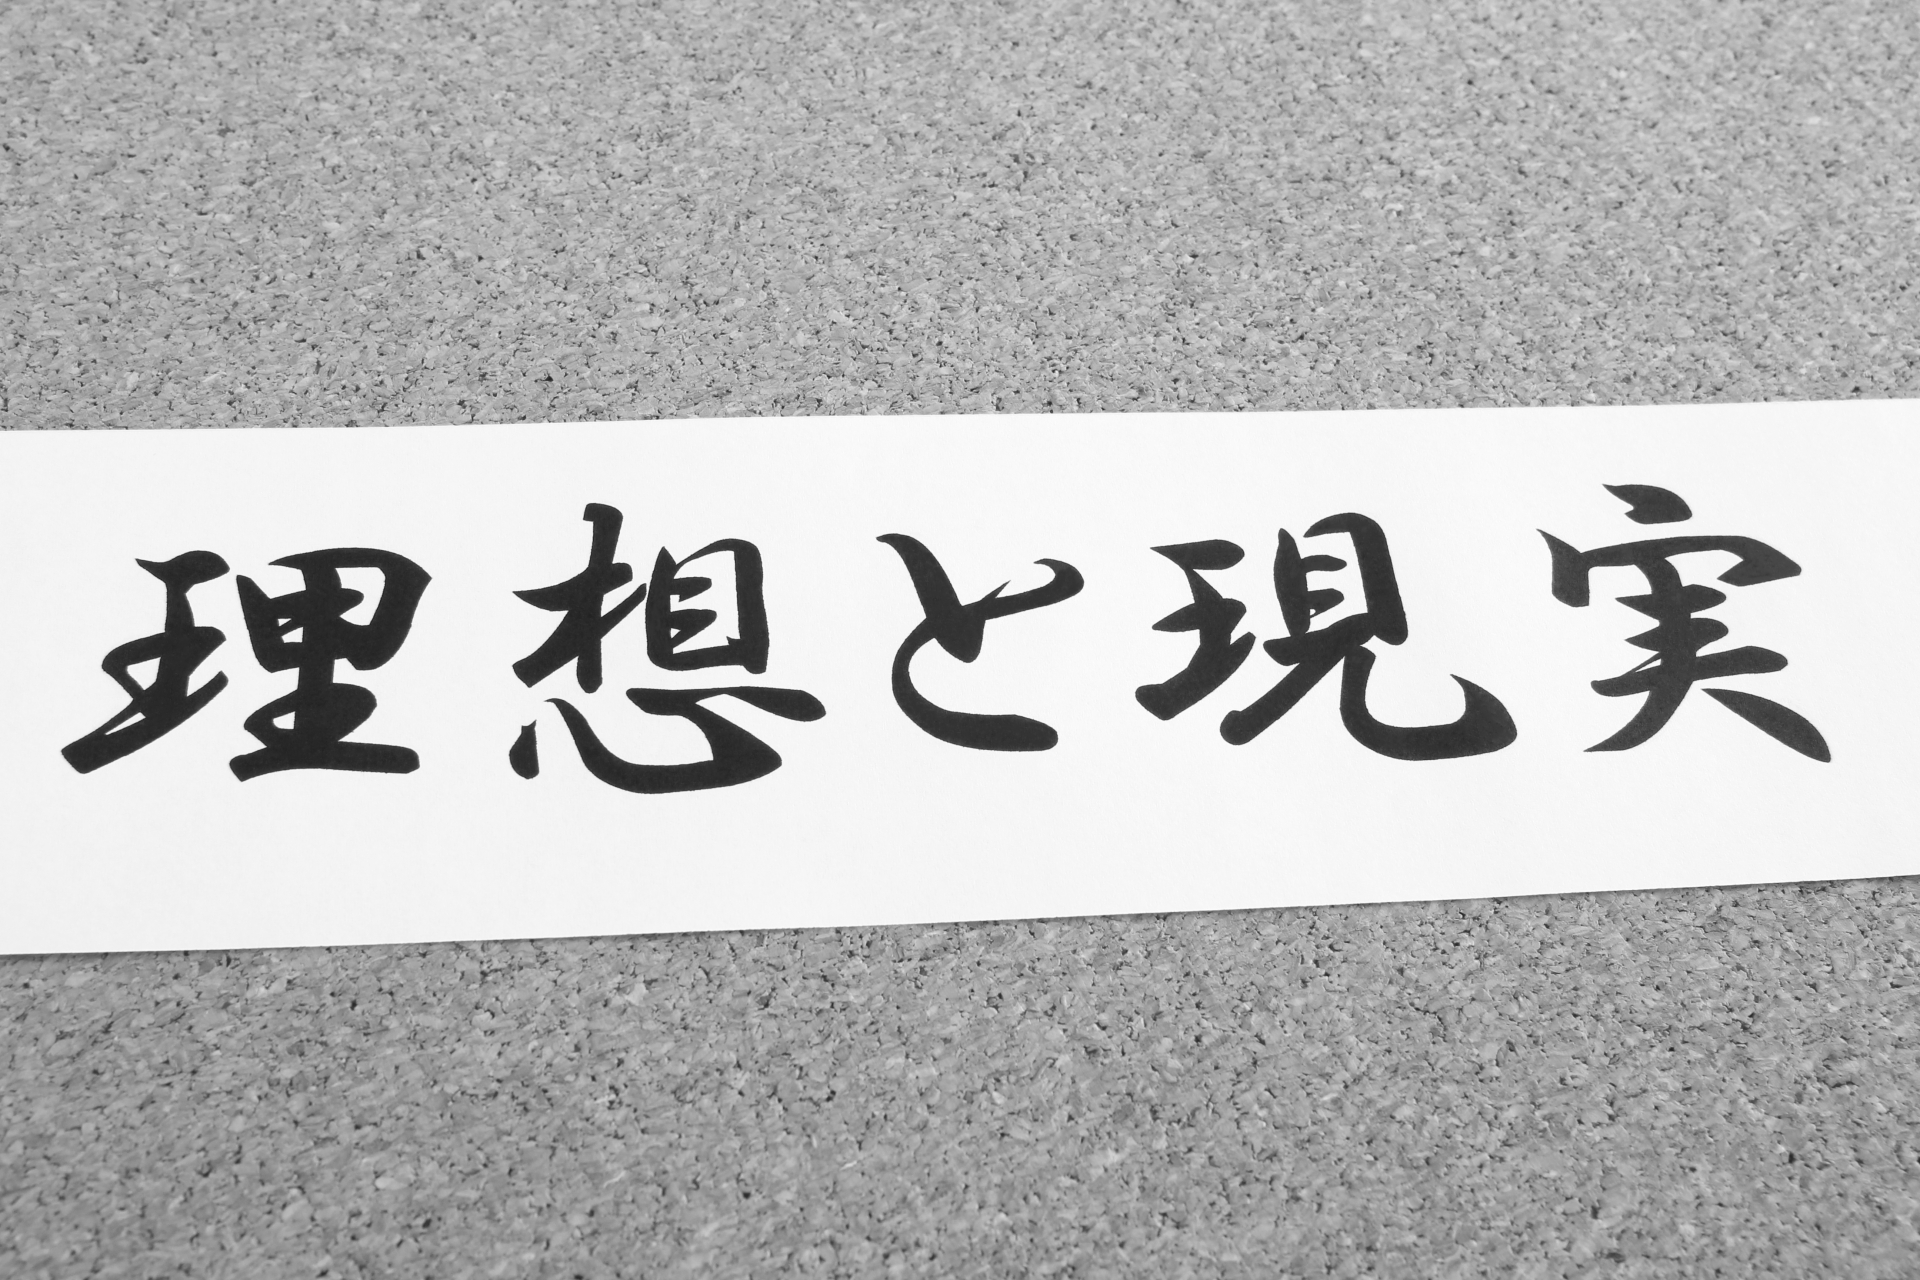 理想と現実